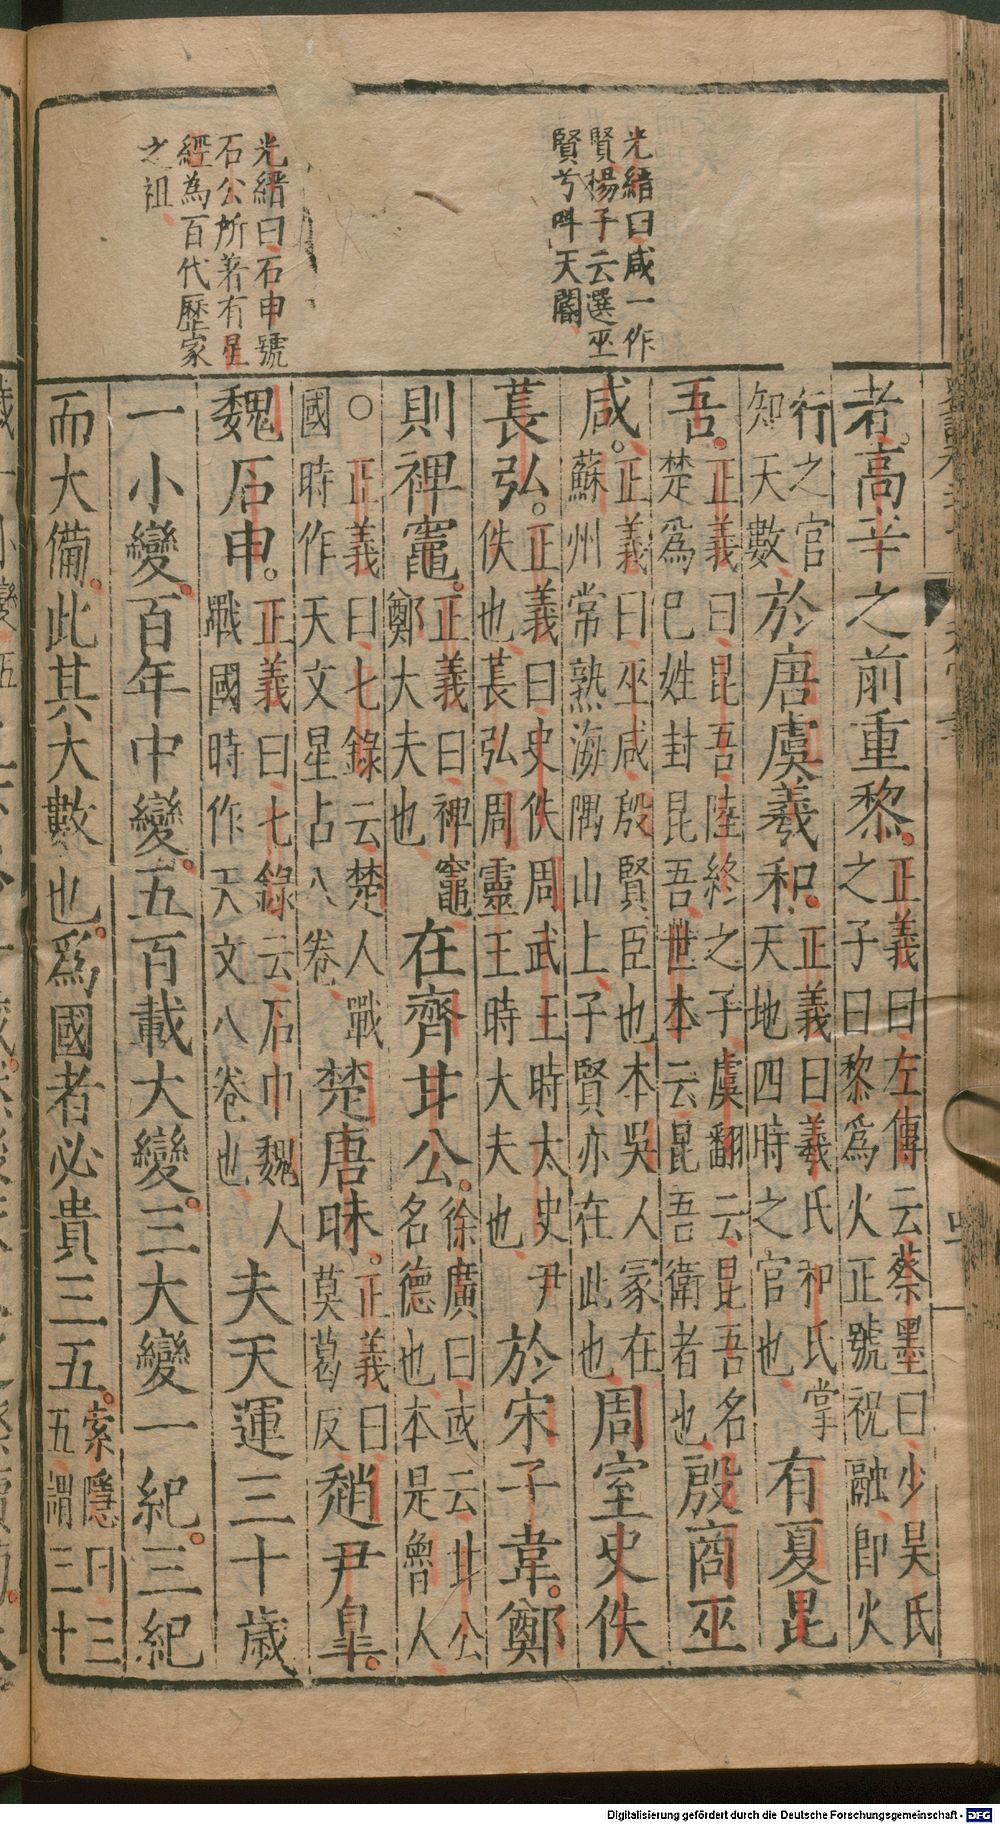 光縉曰咸一作
賢楊子云選巫
賢兮呌天閽
光縉曰石申號
石公所著有星
經為百代歷家
之祖
者。高辛之前重黎。正義曰左傳云蔡墨曰少昊氏之子曰黎爲火正號祝融即火
行之官知天數於唐虞羲和。正義曰羲氏和氏掌天地四時之官也有夏昆
吾。正義曰昆吾陸終之子虞翻云昆吾名楚爲巳姓封昆吾世本云昆吾衛者也殷商巫
咸。正義曰巫咸殷賢臣也本吳人冢在蘇州常熟海隅山上子賢亦在此也周室史佚
萇弘。正義曰史佚周武王時太史尹佚也萇弘周靈王時大夫也於宋子韋。鄭
則裨竈。正義曰裨竈鄭大夫也在齊甘公。徐廣曰或云甘公名德也本是魯人
○正義曰七錄云楚人戰國時作天文星占八卷楚唐昧。正義曰莫葛反趙尹臯。
魏石申。正義曰七錄云石巾魏人戰國時作天文八卷也夫天運三十歲
一小變。百年中變。五百載大變。三大變一紀。三紀
而大備。此其大數也。爲國者必貴三五。索隱曰三五謂三十
Digitalisierung gefördert durch die Deutsche Forschungsgemeinschaft - DFG